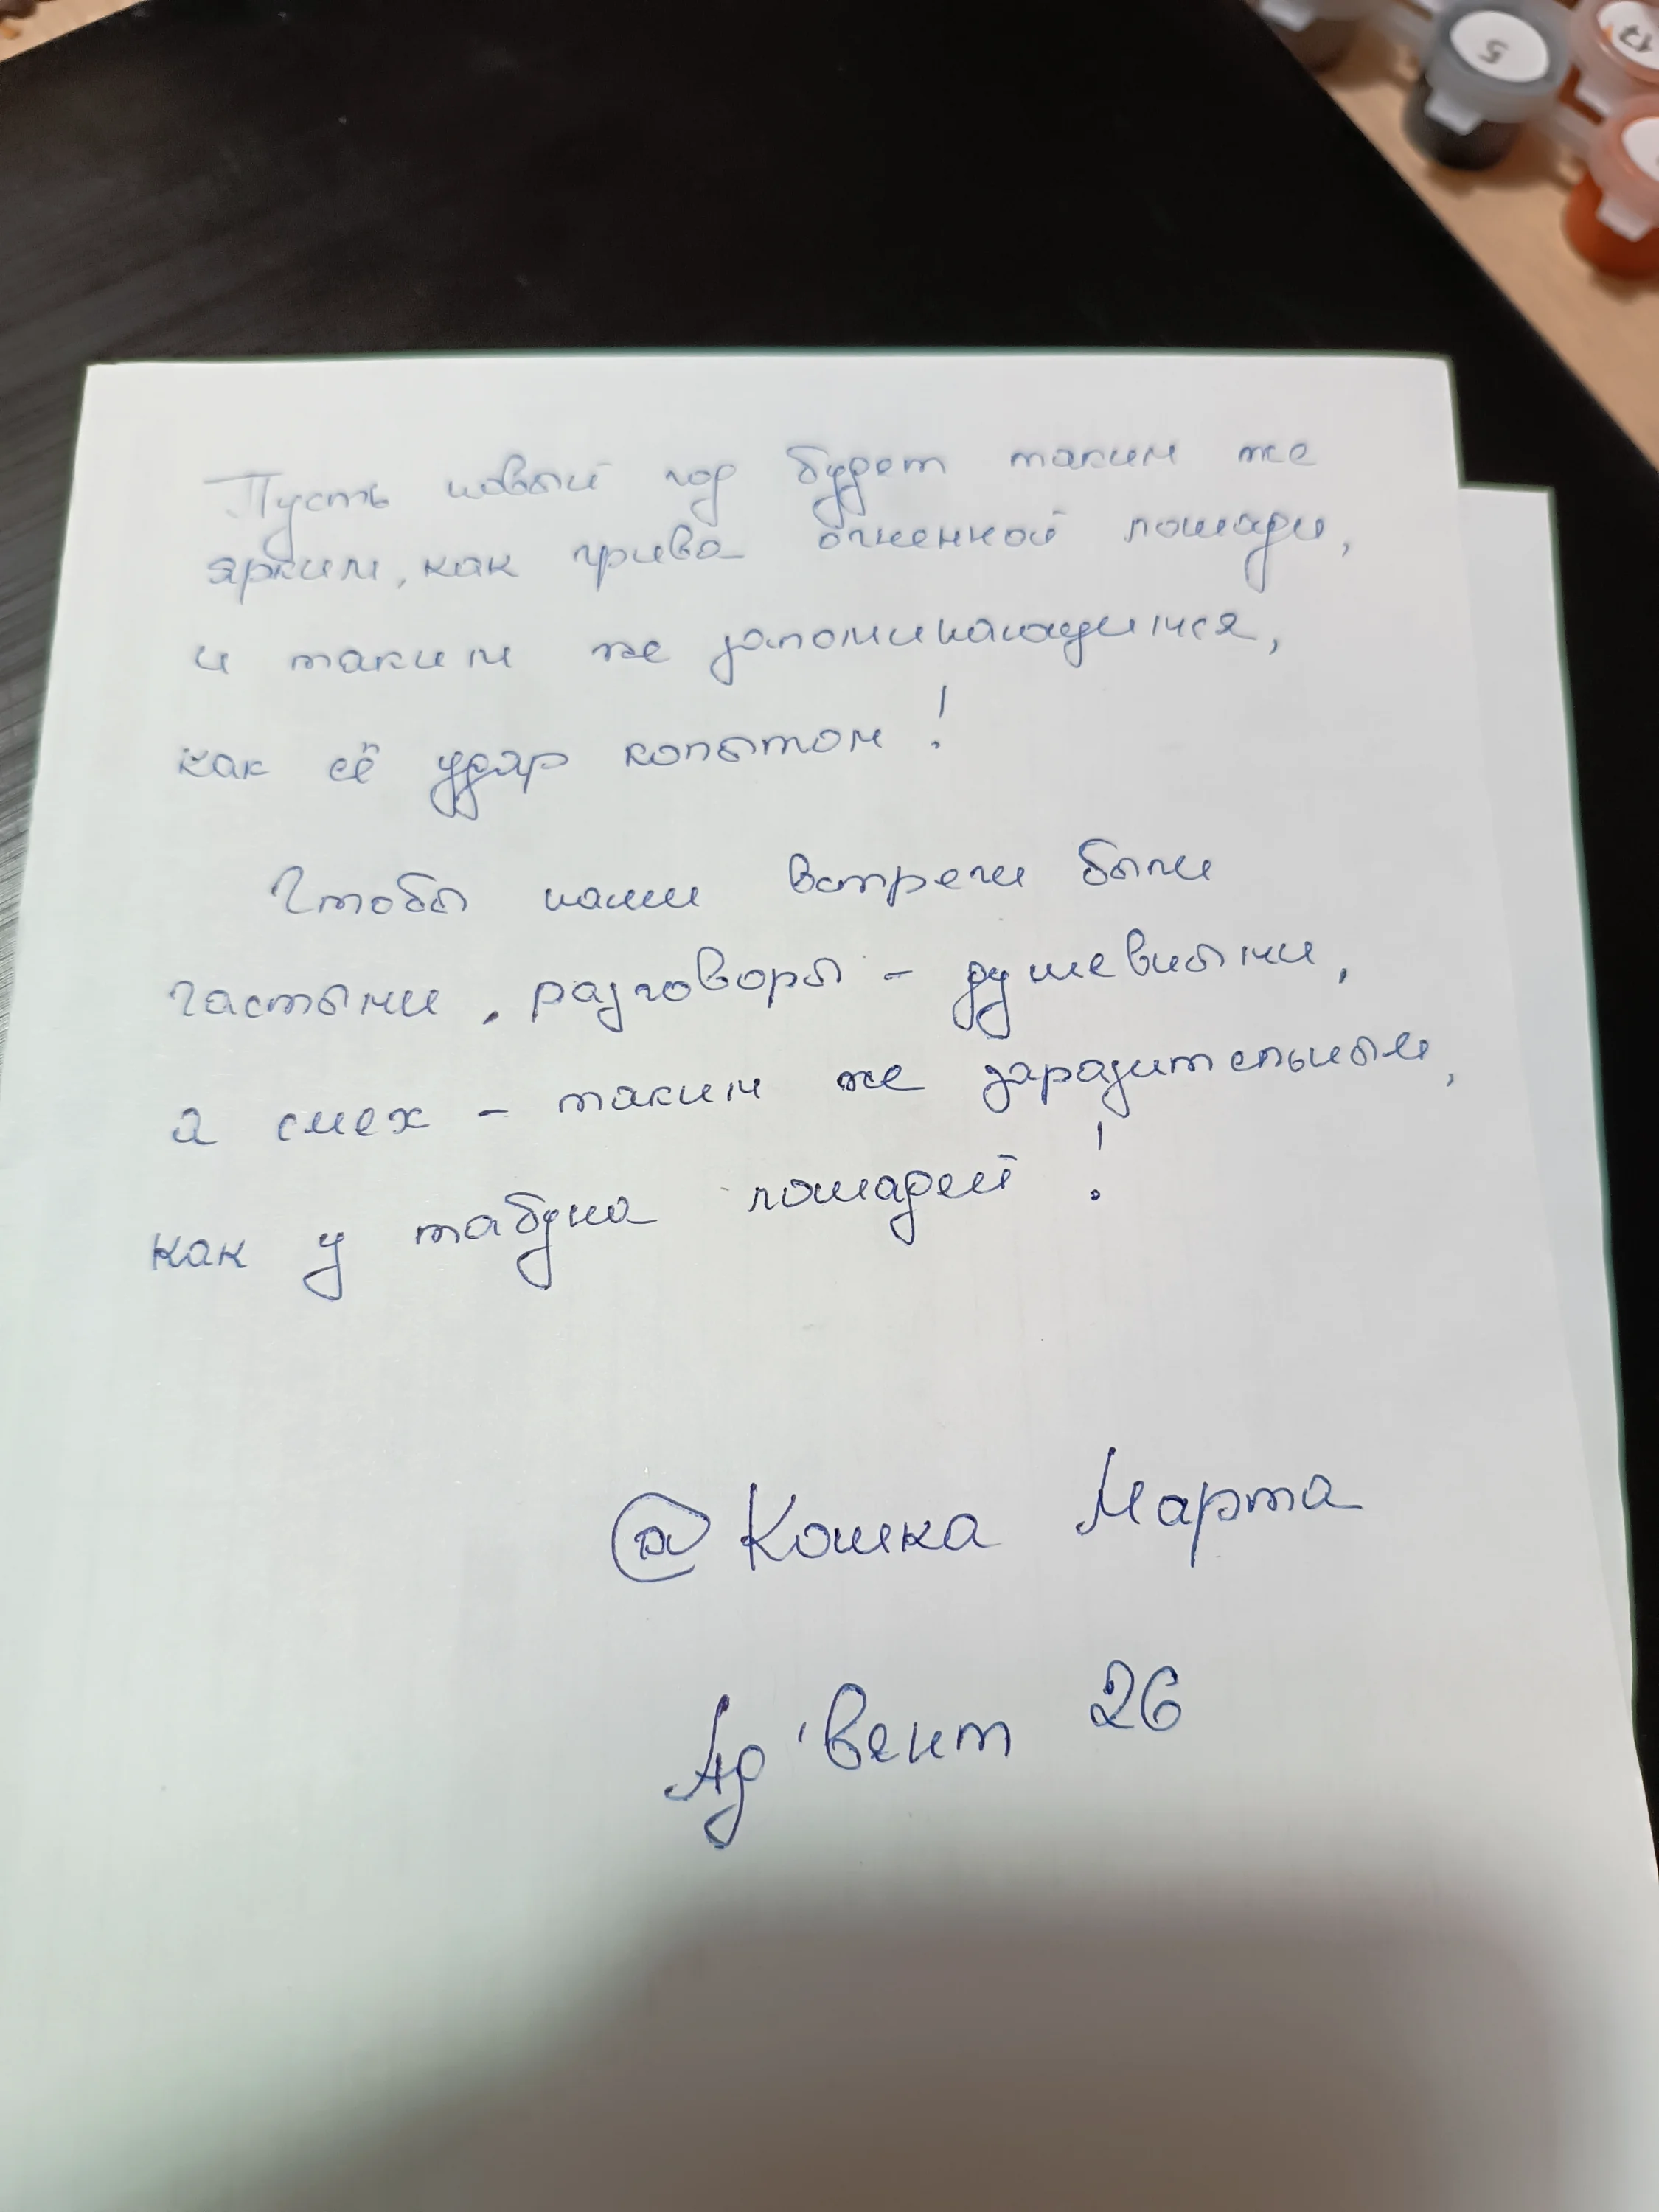 5
17
Пусть новый год будет таким же
ярким, как грива огненной лошади,
и таким же запоминающимся,
как её удар копытом!
Чтобы наши встречи были
частыми, разговоры - душевными,
а смех - таким же заразительным,
как у табуна лошадей!
@Кошка Марта
Ад'вент 26